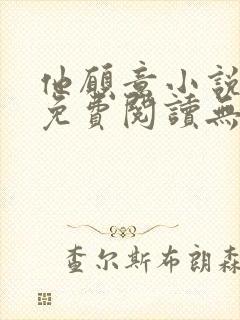 他願意小說
免費閱讀無
查尔斯布朗森